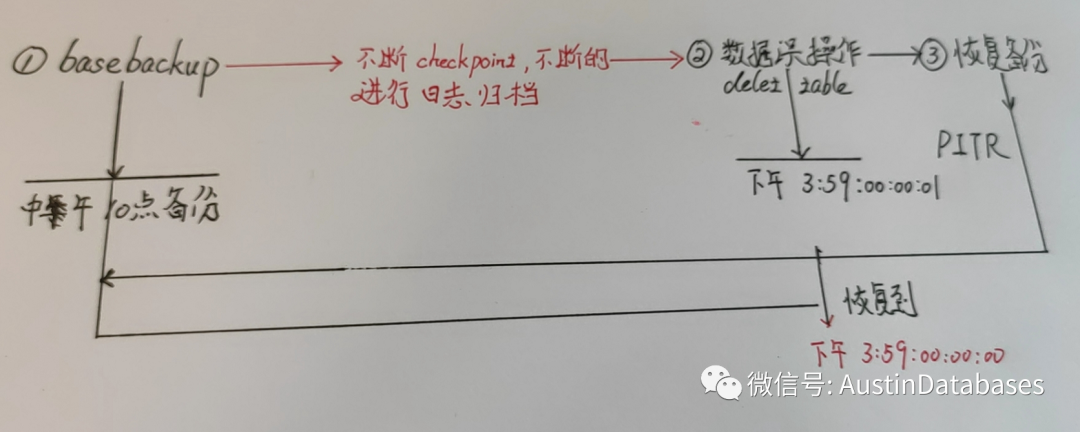 ① basebackup
不断 checkpoint, 不断的
进行 日志归档
② 数据误操作
delet table
③ 恢复备份
PITR
午 10点备份
下午 3:59:00:00:01
恢复到
下午 3:59:00:00:00
微信号: AustinDatabases